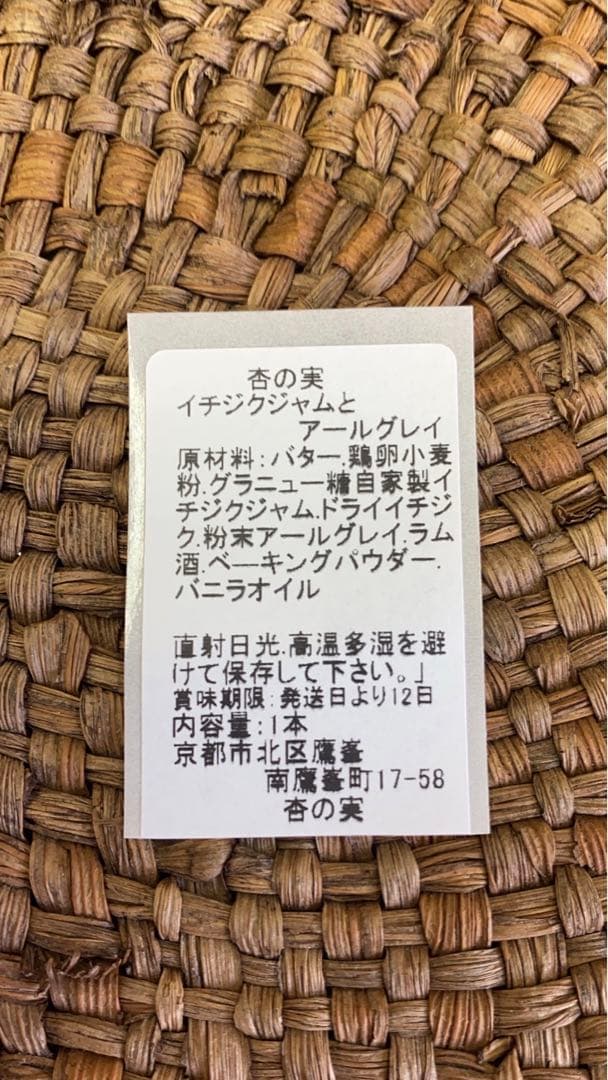 杏の実
イチジクジャムと
アールグレイ
原材料:バター.鶏卵小麦
粉.グラニュー糖自家製イ
チジクジャム.ドライイチジ
ク.粉末アールグレイ.ラム
酒.ベーキングパウダー.
バニラオイル
直射日光.高温多湿を避
けて保存して下さい。」
賞味期限:発送日より12日
内容量:1本
京都市北区鷹峯
南鷹峯町17-58
杏の実